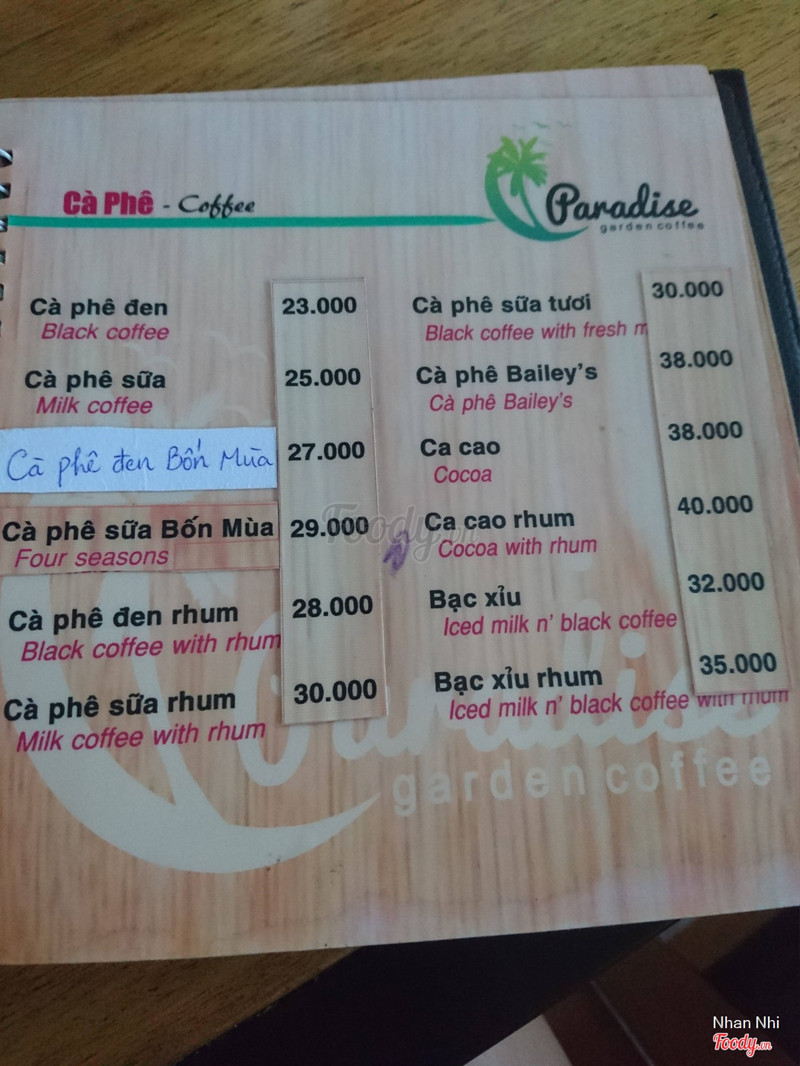 Cà Phê - Coffee
Paradise
garden coffee
Cà phê đen 23.000
Black coffee
Cà phê sữa 25.000
Milk coffee
Cà phê đen Bốn Mùa 27.000
Cà phê sữa Bốn Mùa 29.000
Four seasons
Cà phê đen rhum 28.000
Black coffee with rhum
Cà phê sữa rhum 30.000
Milk coffee with rhum
Cà phê sữa tươi 30.000
Black coffee with fresh
Cà phê Bailey's 38.000
Cà phê Bailey's
Ca cao 38.000
Cocoa
Ca cao rhum 40.000
Cocoa with rhum
Bạc xỉu 32.000
Iced milk n' black coffee
Bạc xỉu rhum 35.000
Iced milk n' black coffee with rhum
Paradise
garden coffee
Foody.vn
Nhan Nhi
Foody.vn